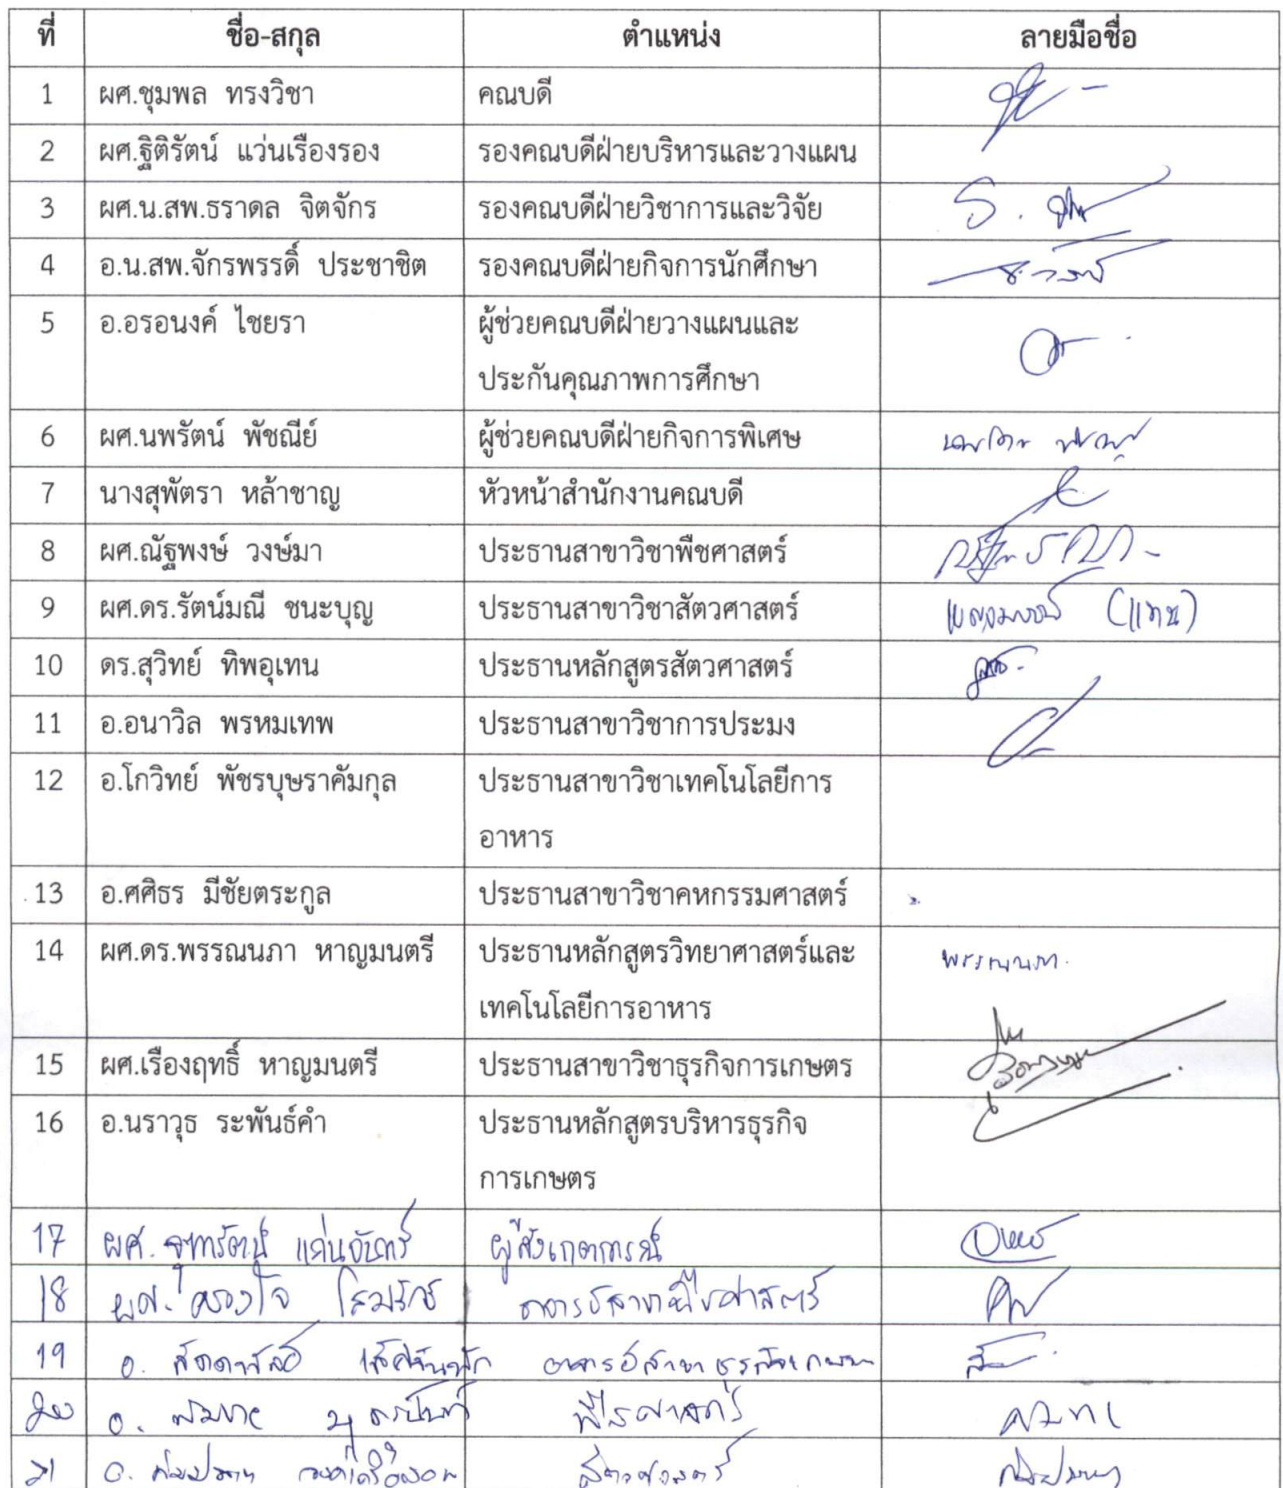 ที่ ชื่อ-สกุล ตำแหน่ง ลายมือชื่อ
1 ผศ.ชุมพล ทรงวิชา คณบดี
2 ผศ.ฐิติรัตน์ แว่นเรืองรอง รองคณบดีฝ่ายบริหารและวางแผน
3 ผศ.น.สพ.ธราดล จิตจักร รองคณบดีฝ่ายวิชาการและวิจัย
4 อ.น.สพ.จักรพรรดิ์ ประชาชิต รองคณบดีฝ่ายกิจการนักศึกษา
5 อ.อรอนงค์ ไชยรา ผู้ช่วยคณบดีฝ่ายวางแผนและ
ประกันคุณภาพการศึกษา
6 ผศ.นพรัตน์ พัชณีย์ ผู้ช่วยคณบดีฝ่ายกิจการพิเศษ
7 นางสุพัตรา หล้าชาญ หัวหน้าสำนักงานคณบดี
8 ผศ.ณัฐพงษ์ วงษ์มา ประธานสาขาวิชาพืชศาสตร์
9 ผศ.ดร.รัตน์มณี ชนะบุญ ประธานสาขาวิชาสัตวศาสตร์ (แทน)
10 ดร.สุวิทย์ ทิพอุเทน ประธานหลักสูตรสัตวศาสตร์
11 อ.อนาวิล พรหมเทพ ประธานสาขาวิชาการประมง
12 อ.โกวิทย์ พัชรบุษราคัมกุล ประธานสาขาวิชาเทคโนโลยีการ
อาหาร
13 อ.ศศิธร มีชัยตระกูล ประธานสาขาวิชาคหกรรมศาสตร์
14 ผศ.ดร.พรรณนภา หาญมนตรี ประธานหลักสูตรวิทยาศาสตร์และ พรรณนภา
เทคโนโลยีการอาหาร
15 ผศ.เรืองฤทธิ์ หาญมนตรี ประธานสาขาวิชาธุรกิจการเกษตร
16 อ.นราวุธ ระพันธ์คำ ประธานหลักสูตรบริหารธุรกิจ
การเกษตร
17 ผศ. จุฑารัตน์ แก่นจันทร์ ผู้สังเกตการณ์
18 ผศ.
19 อ.
20 อ. พืชศาสตร์
21 อ. สัตวศาสตร์